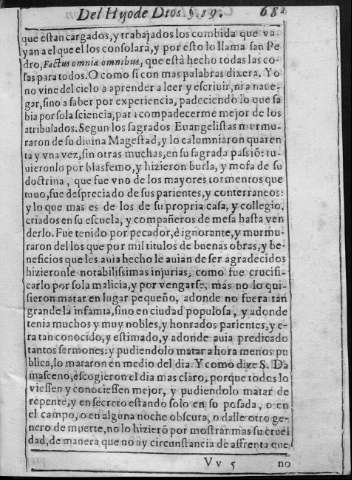 Del Hijo de Dios §.19. 681
que estan cargados, y trabajados los combida que va-
yan a el que el los consolará, y por esto lo llama san Pe
dro, Factus omnia omnibus, que está hecho todas las co-
sas para todos. O como si con mas palabras dixera. Yo
no vine del cielo a aprender a leer y escriuir, ni a naue-
gar, sino a saber por experiencia, padeciendo lo que sa
bia por sola sciencia, para compadecerme mejor de los
atribulados. Segun los sagrados Euangelistas murmu-
raron de su diuina Magestad, y lo calumniaron quaren
ta y vna vez, sin otras muchas, en su sagrada passiõ: tu-
uieronlo por blasfemo, y hizieron burla, y mofa de su
doctrina, que fue vno de los mayores tormentos que
tuuo, fue despreciado de sus parientes, y conterraneos:
y lo que mas es de los de su propria casa, y collegio,
criados en su escuela, y compañeros de mesa hasta ven
derlo. Fue tenido por pecador, è ignorante, y murmu-
raron del los que por mil titulos de buenas obras, y be-
neficios que les auia hecho le auian de ser agradecidos
hizieronle notabilissimas injurias, como fue crucifi-
carlo por sola malicia, y por vengarse, mas no lo qui-
sieron matar en lugar pequeño, adonde no fuera tan
grande la infamia, sino en ciudad populosa, y adonde
tenia muchos y muy nobles, y honrados parientes, y e-
ra tan conocido, y estimado, y adonde auia predicado
tantos sermones: y pudiendolo matar a hora menos pu
blica, lo mataron en medio del dia. Y como dize S. Da
masceno, escogieron el dia mas claro, porque todos lo
viessen y conociessen mejor, y pudiendolo matar de
repente, y en secreto estando solo en su posada, o en
el campo, o en alguna noche obscura, o dalle otro ge-
nero de muerte, no lo hizierõ por mostrar mas su cruel
dad, de manera que no ay circunstancia de affrenta que
Vv 5 no